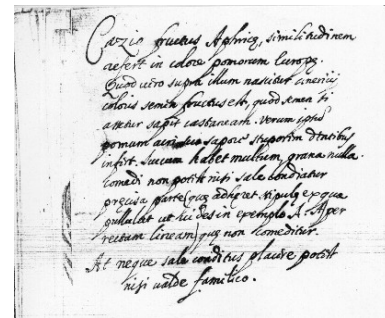 Cazio fructus Aphricę, similitudinem
refert in colore pomorum Europę.
Quod vero supra illum nascitur cinericij
coloris semen fructus est, quod semen si
assetur sapit castaneam. Verum ipsum
pomum sapore stuporem dentibus
infert. Sucum habet multum, grana nulla.
comedi non potest nisi sale condiatur
precisa parte (quę adhęret stipulę ex qua
pullulat ut vides in exemplo A. A per
rectam lineam) quę non comeditur.
At neque sale conditus placere potest
nisi valde famelico.